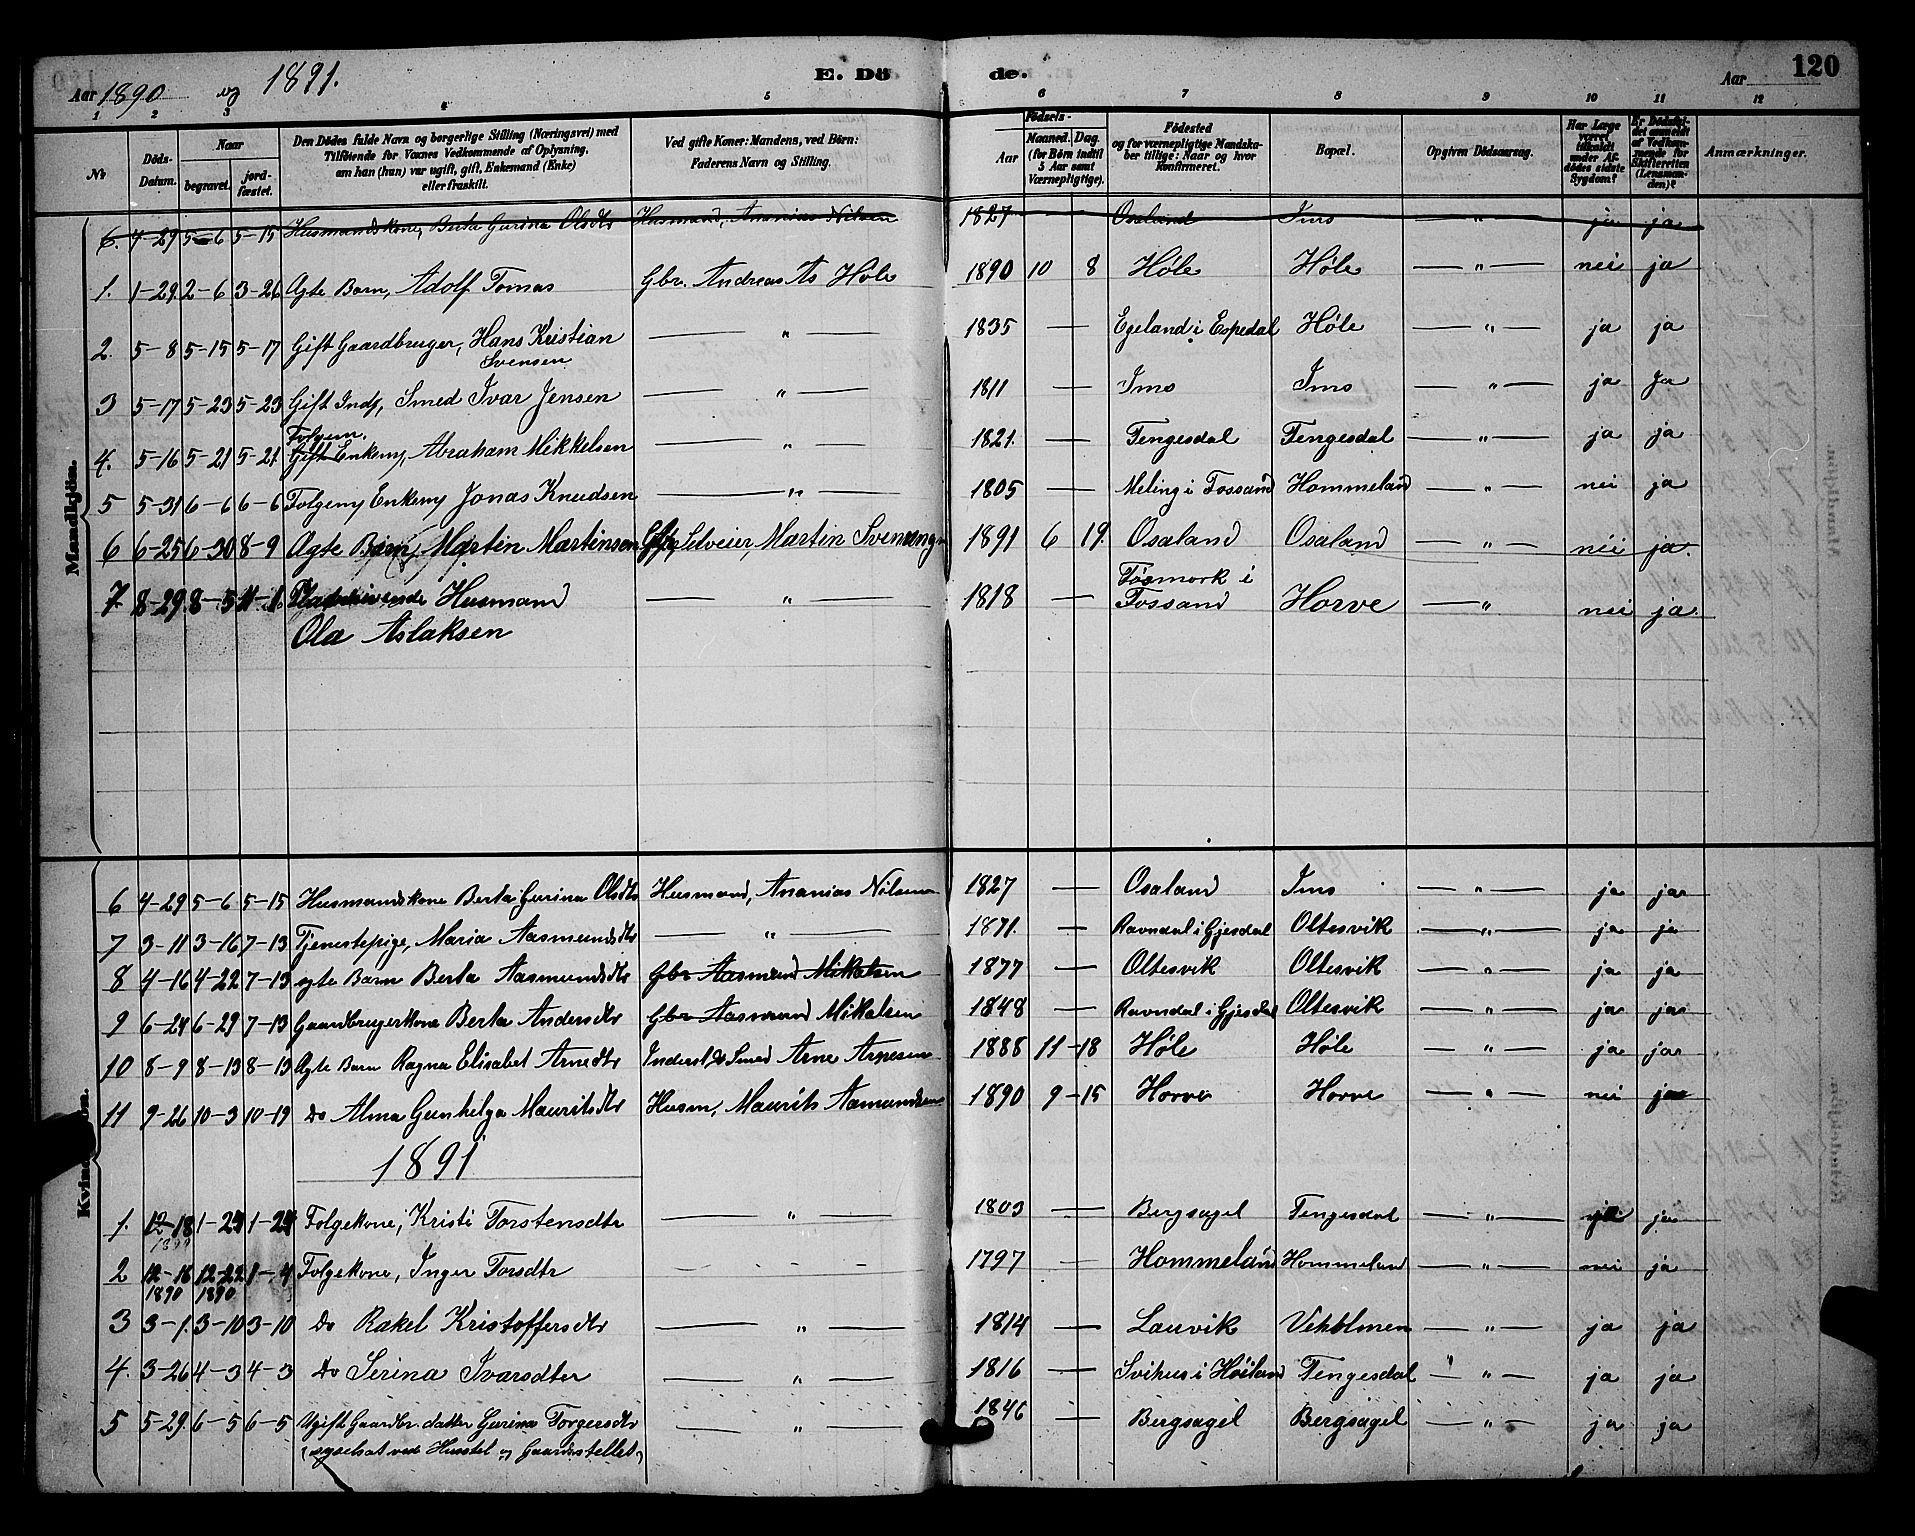 Aar 1890 og 1891. E. Dö de. Aar 120
1 2 3 4 5 6 7 8 9 10 11 12
No
Döds-Datum.
Naar
begravet.
jord-fæstet.
Den Dödes fulde Navn og borgerlige Stilling (Næringsvei) med
Tilföiende for Voxnes Vedkommende af Oplysning,
om han (hun) var ugift, gift, Enkemand (Enke)
eller fraskilt.
Ved gifte Koner: Mandens, ved Börn:
Faderens Navn og Stilling.
Födsels-
Aar
Maaned. Dag.
(for Börn indtil
5 Aar samt
Værnepligtige).
Födested
og for værnepligtige Mandska-
ber tillige: Naar og hvor
konfirmeret.
Bopæl.
Opgiven Dödsaarsag.
Har Læge
været
tilkaldt
under Af-
dödes sidste
Sygdom?
Er Dödsfal-
det anmeldt
af Vedkom-
mende for
Skifteretten
(Lensman-
den)?
Anmærkninger.
Mandkjön.
6. 4-29 5-6 5-15 Husmandskone, Berta Gurina Olsdtr Husmand, Ananias Nilsen 1827 — Osaland Ims — " — ja ja
1. 1-29. 2-6 3-26 Ægte Barn, Adolf Tomas Gbr. Andreas As Høle 1890 10 8 Høle Høle — " — nei ja
2. 5-8 5-15 5-17 Gift Gaardbruger, Hans Kristian — " — 1835 — Egeland i Espedal Høle — " — ja ja
Svensen
3 5-17 5-23 5-23 Gift Inds, Smed Ivar Jensen — " — 1811 — Ims Ims — " — ja Ja
Folgem.
4. 5-16 5-21 5-21 Gift Enkem, Abraham Mikkelsen — " — 1821. — Tengesdal Tengesdal — " — ja ja
5 5-31 6-6 6-6 Folgem, Enkem, Jonas Knudsen — " — 1805 — Meling i Fossand Hommeland — " — nei ja
6 6-25 6-30 8-9 Ægte Barn, Martin Martinsen Selveier, Martin 1891 6 19. Osaland Osaland — " — nei ja.
7. 8-29. 8-5 11-1. Husmand — " — 1818 — Tösmork i
Fossand Horve — " nei ja.
Ola Aslaksen
Kvindekjön.
6 4-29 5-6 5-15 Husmandskone Berta Gurina Olsdtr Husmand, Ananias Nilsen 1827 — Osaland Ims — " — ja ja
7 3-11 3-16 7-13 Tjenestepige, Maria Aasmundsdtr — " — 1871. — Ravndal i Gjesdal Oltesvik — " — ja ja
8 4-16 4-22 7-13 ægte Barn Berta Aasmundsdtr Gbr Aasmund Mikalsen 1877 — Oltesvik Oltesvik — " — ja ja
9 6-24 6-29 7-13 Gaardbrugerkone Berta Andersdtr Gbr Aasmund Mikalsen 1848 — Ravndal i Gjesdal Oltesvik — " — ja ja
10 8-9 8-13 8-13 Ægte Barn Ragna Elisabet Arnedtr Inderst & Smed Arne Arnesen 1888 11-18 Høle Høle — " — ja ja
11 9-26 10-3 10-19 Do Alma Gunhelga Mauritsdtr Husm, Maurits Aamundsen 1890 9-15 Horve Horve — " — nei ja
1891
1. 12-18 1-24 1-24 Folgekone, Kristi Torstensdtr — " — 1803 — Bergsagel Tengesdal — " — ja
2 12-16 12-22 1-4 Folgekone, Inger Torsdtr — " — 1797 — Hommeland Hommeland — " — nei ja
1890 1890
3 3-1. 3-10 3-10 Do Rakel Kristoffersdtr — " — 1814 — Lauvik Vekholmen — " — ja ja
4. 3-26 4-3 4-3 Do Serina Ivarsdtter — " — 1816 — Svihus i Høiland Tengesdal " — " — ja ja
5 5-29. 6-5 6-5 Ugift Gaardbr. datter Gurina Torgersdtr — " — 1846 — Bergsagel Bergsagel — " — ja ja
(sysselsat ved Husstel og Gaardsstellet)